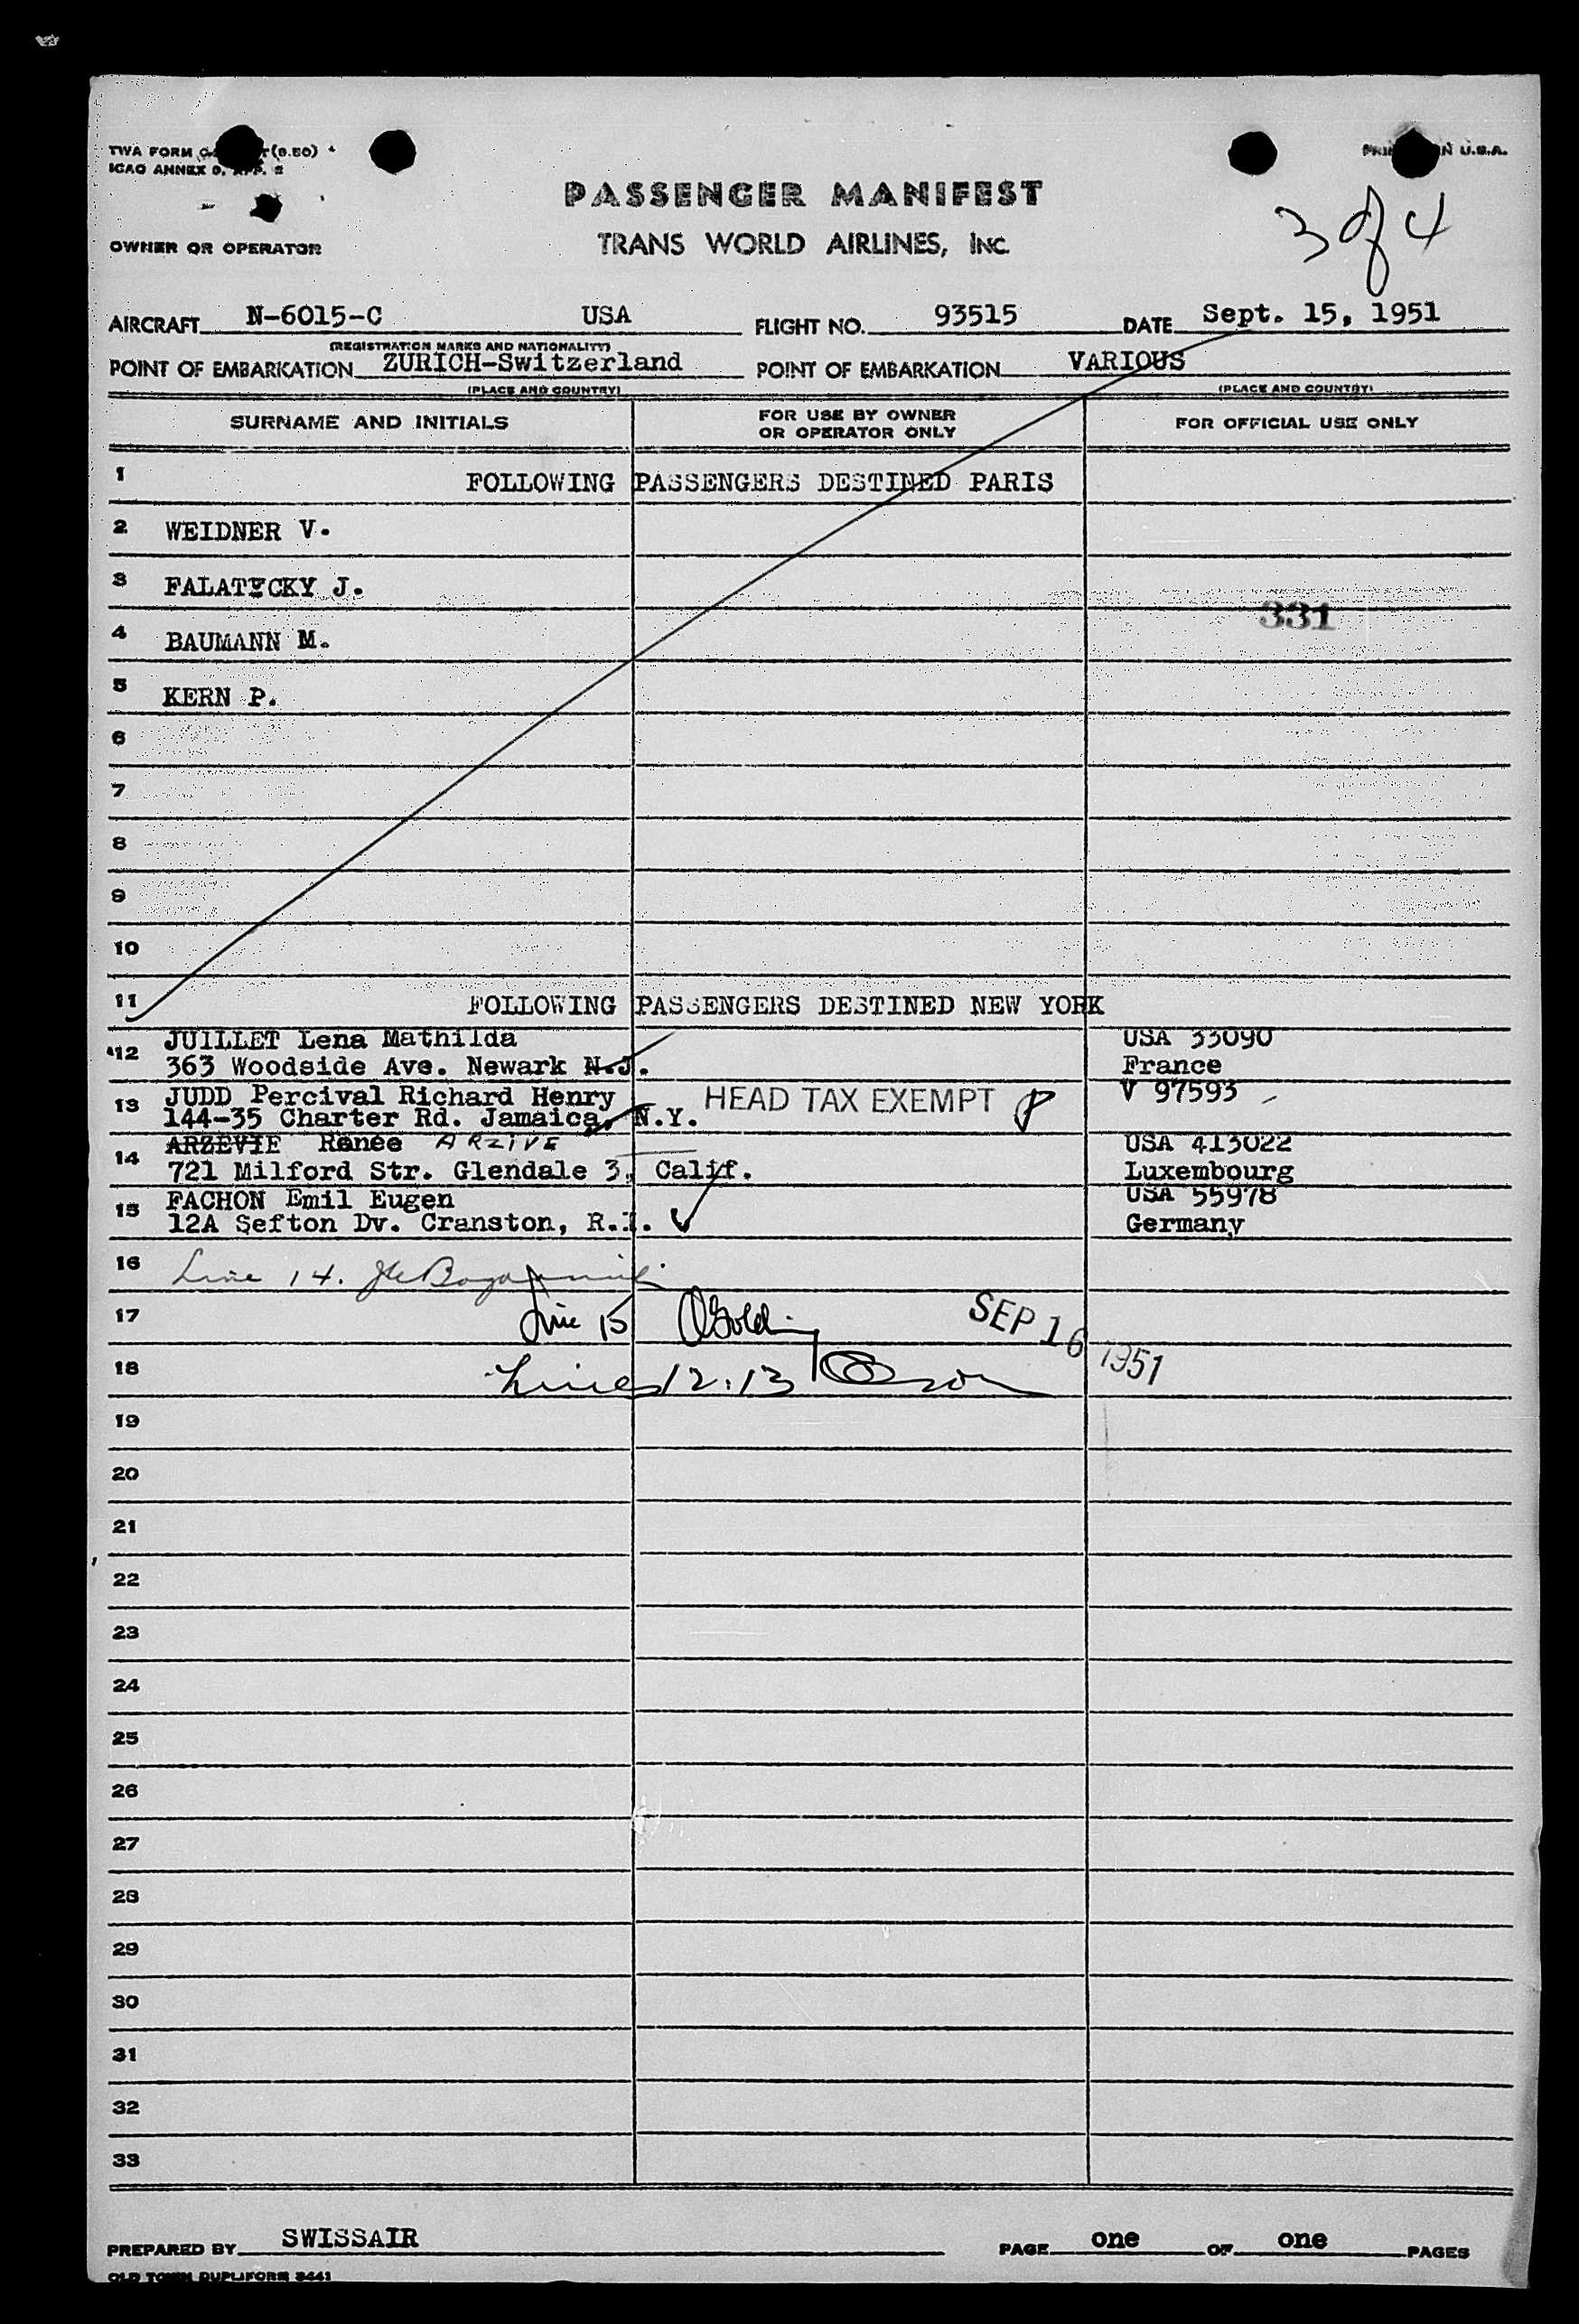 TWA FORM (8.50)
PRIN IN U.S.A.
ICAO ANNEX 9, APP. 5
PASSENGER MANIFEST
3 of 4
OWNER OR OPERATOR
TRANS WORLD AIRLINES, INC.
AIRCRAFT N-6015-C USA FLIGHT NO. 93515 DATE Sept. 15, 1951
(REGISTRATION MARKS AND NATIONALITY)
POINT OF EMBARKATION ZURICH-Switzerland POINT OF EMBARKATION VARIOUS
(PLACE AND COUNTRY) (PLACE AND COUNTRY)
SURNAME AND INITIALS FOR USE BY OWNER OR OPERATOR ONLY FOR OFFICIAL USE ONLY
1 FOLLOWING PASSENGERS DESTINED PARIS
2 WEIDNER V.
3 FALATYCKY J.
331
4 BAUMANN M.
5 KERN P.
6
7
8
9
10
11 FOLLOWING PASSENGERS DESTINED NEW YORK
12 JUILLET Lena Mathilda USA 33090
363 Woodside Ave. Newark N.J. France
13 JUDD Percival Richard Henry HEAD TAX EXEMPT V 97593
144-35 Charter Rd. Jamaica, N.Y.
14 ARZEVIE Renée ARZIVE USA 413022
721 Milford Str. Glendale 3, Calif. Luxembourg
15 FACHON Emil Eugen USA 55978
12A Sefton Dv. Cranston, R.I. Germany
16 Line 14.
17 Line 15 SEP 16 1951
18 Lines 12.13
19
20
21
22
23
24
25
26
27
28
29
30
31
32
33
PREPARED BY SWISSAIR PAGE one OF one PAGES
OLD TOWN DUPLIFORM 3441